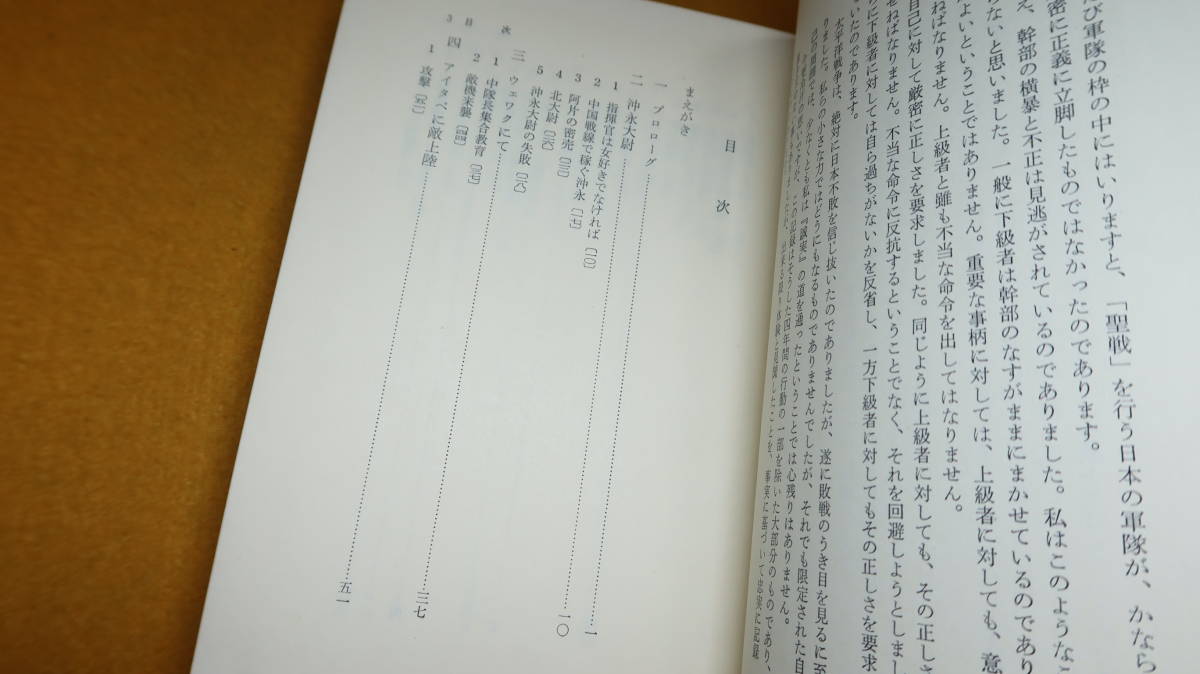 び軍隊の枠の中にはいりますと、「聖戦」を行う日本の軍隊が、かなら
密に正義に立脚したものではなかったのであります。
え、幹部の横暴と不正は見逃がされているのでありました。私はこのようなこ
らないと思いました。一般に下級者は幹部のなすがままにまかせているのであり
よいということではありません。重要な事柄に対しては、上級者に対しても、意
ねばなりません。上級者と雖も不当な命令を出してはなりません。
自己に対して厳密に正しさを要求しました。同じように上級者に対しても、その正しさ
せねばなりません。不当な命令に反抗するということでなく、それを回避しようとしまし
らに下級者に対しては自ら過ちがないかを反省し、一方下級者に対してもその正しさを要求
いたのであります。
太平洋戦争は、絶対に日本不敗を信じ抜いたのでありましたが、遂に敗戦のうき目を見るに至
りました。私らの小さな力ではどうにもなるものでありませんでしたが、それでも限定された自
己の周囲では、少なくとも私は『誠実』の道を通ったということでは心残りはありません。
この記録はそうした四年間の行動の一部を除いた大部分のものであり、
出来る限り体験と見聞したことを、事実に基づいて忠実に記録
目次
まえがき
一 プロローグ……一
二 沖永大尉……一〇
1 指揮官は女好きでなければ〔一〇〕
2 中国戦線で稼ぐ沖永〔一七〕
3 阿片の密売〔二二〕
4 北大尉〔二六〕
5 沖永大尉の失敗〔二八〕
三 ウェワクにて……三七
1 中隊長集合教育〔三七〕
2 敵機来襲〔四四〕
四 アイタペに敵上陸……五一
1 攻撃〔五一〕
目次
3